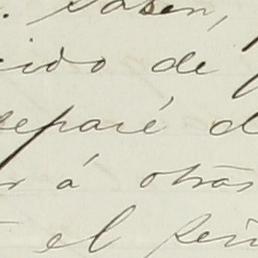 saben,
ido de
separé d
r á otras
el señ